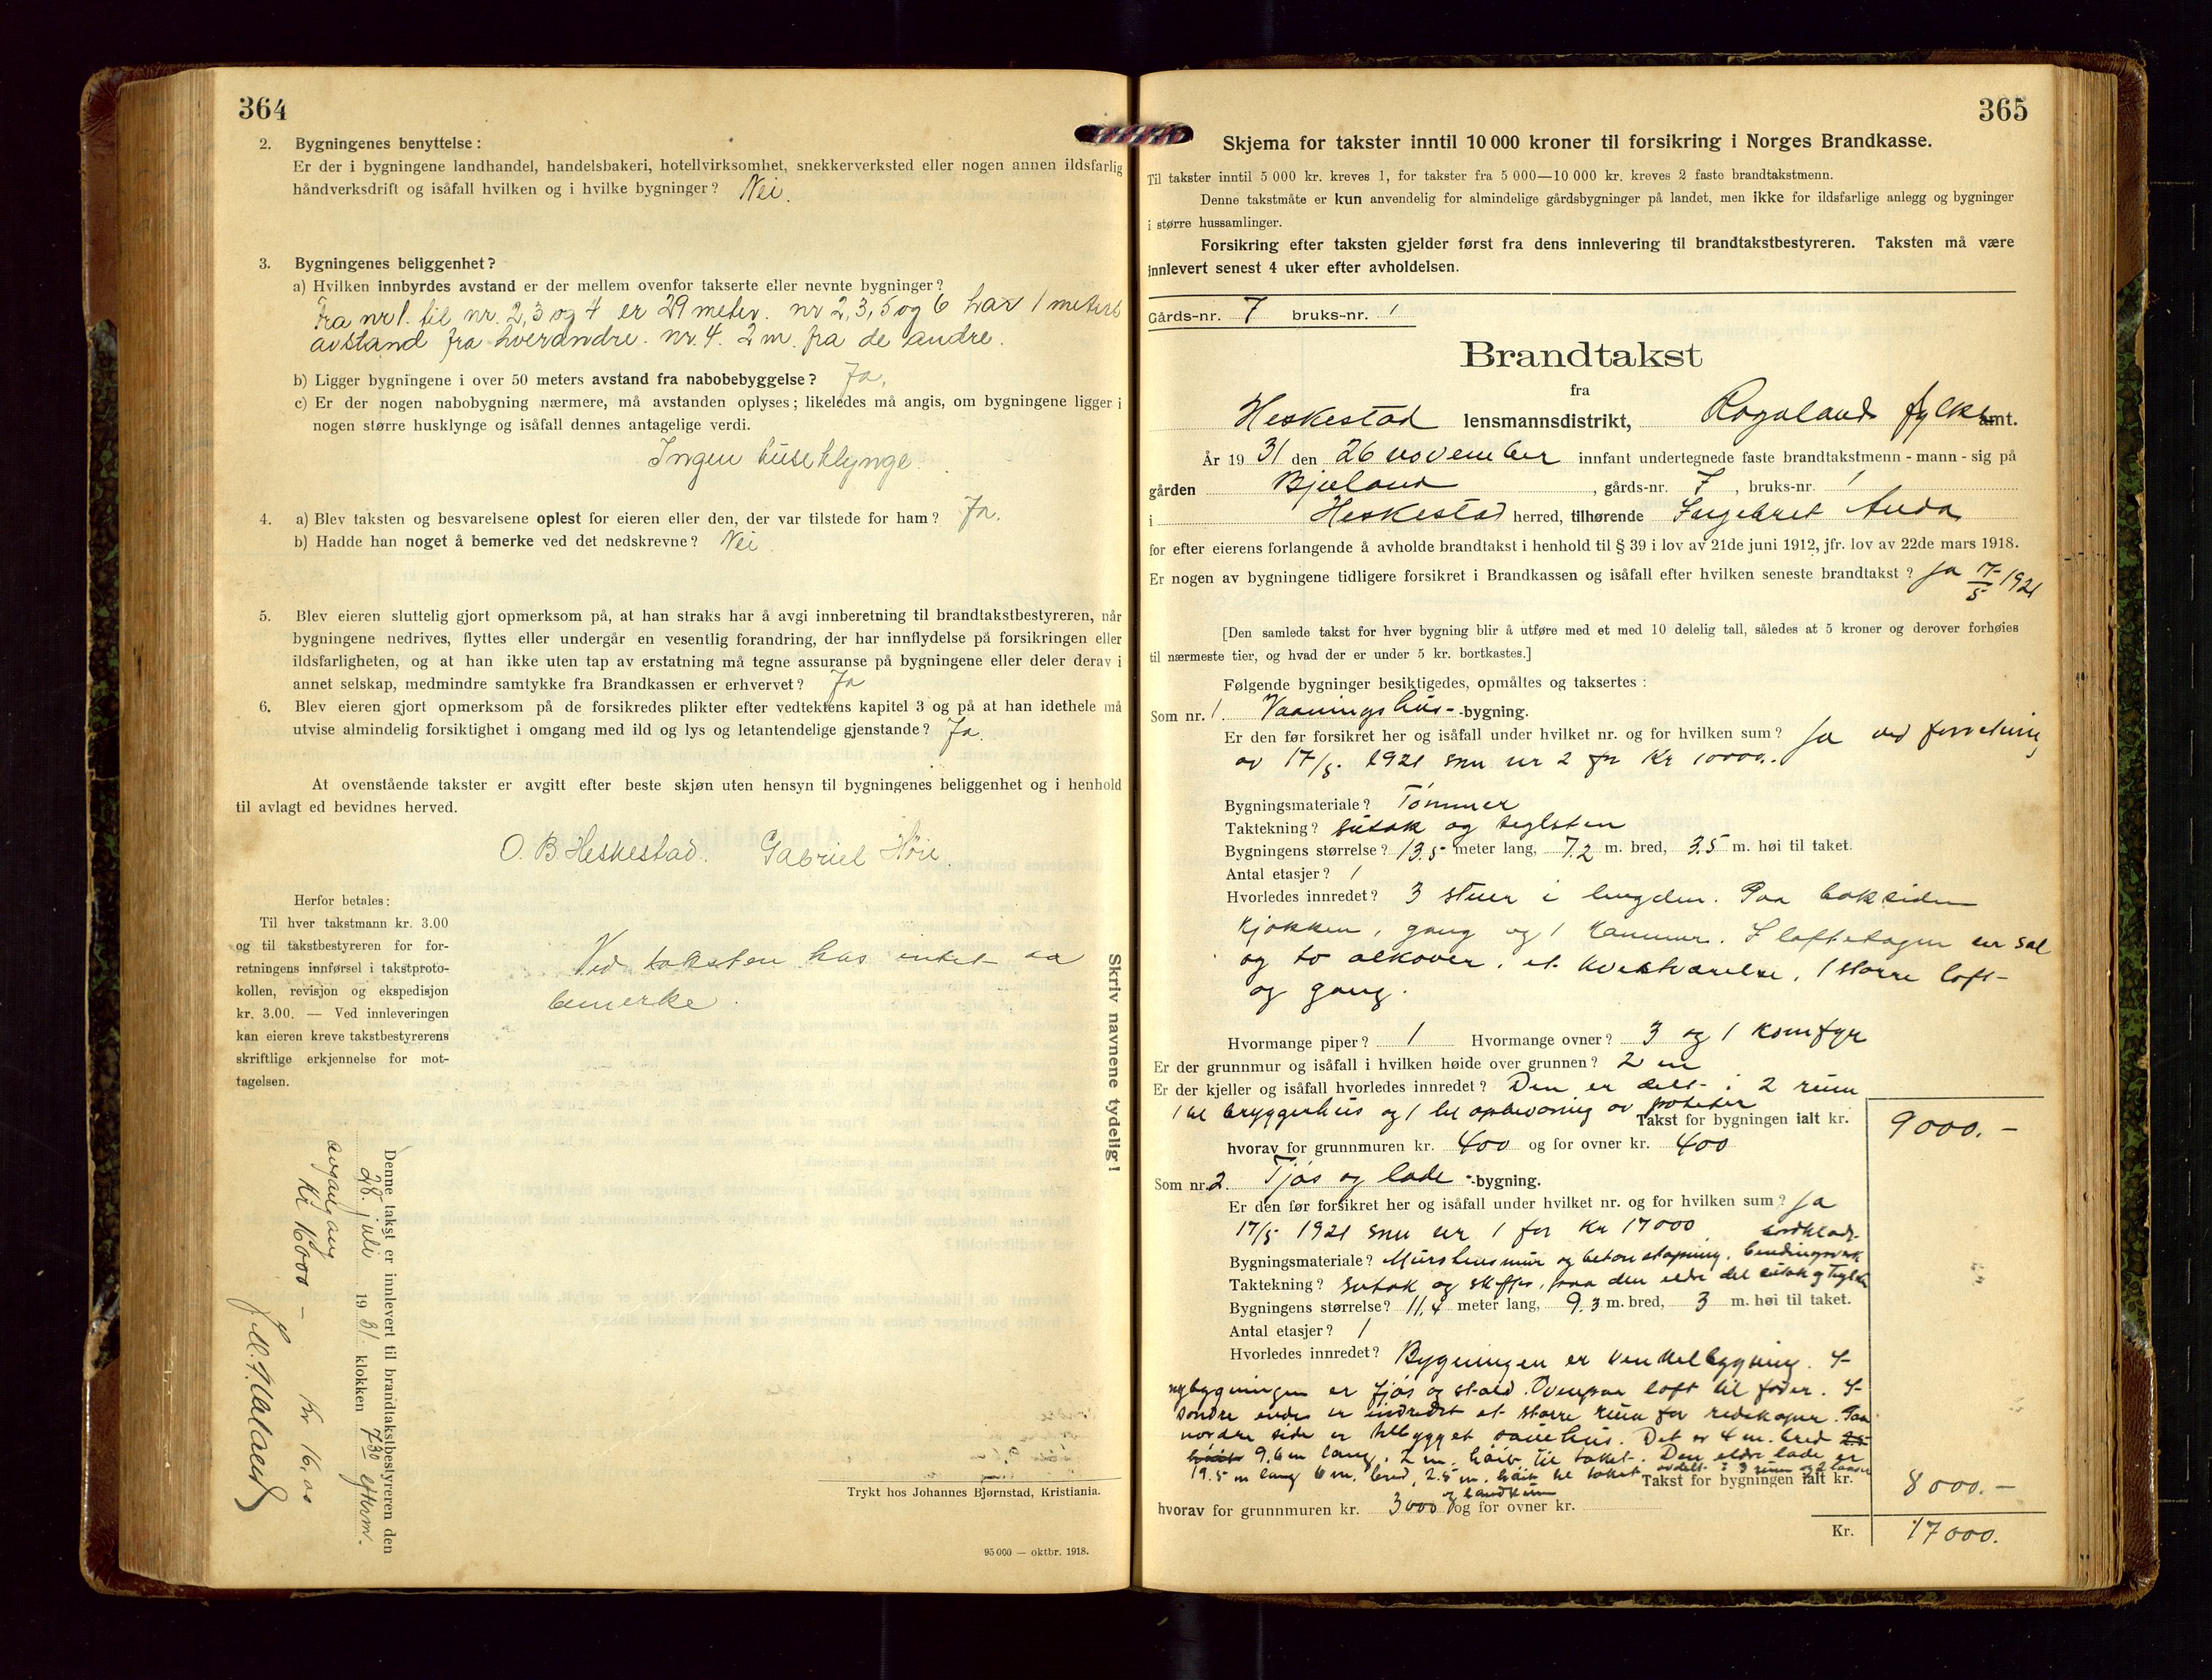 364
2. Bygningenes benyttelse :
Er der i bygningene landhandel, handelsbakeri, hotellvirksomhet, snekkerverksted eller nogen annen ildsfarlig
håndverksdrift og isåfall hvilken og i hvilke bygninger? Nei.
3. Bygningenes beliggenhet?
a) Hvilken innbyrdes avstand er der mellem ovenfor takserte eller nevnte bygninger?
Fra nr 1. til nr. 2, 3 og 4 er 29 meter. nr 2, 3, 5 og 6 har 1 meters
avstand fra hverandre. nr. 4. 2 m. fra de andre.
b) Ligger bygningene i over 50 meters avstand fra nabobebyggelse? Ja,
c) Er der nogen nabobygning nærmere, må avstanden oplyses; likeledes må angis, om bygningene ligger i
nogen større husklynge og isåfall dennes antagelige verdi.
Ingen huseklynge.
4. a) Blev taksten og besvarelsene oplest for eieren eller den, der var tilstede for ham? Ja.
b) Hadde han noget å bemerke ved det nedskrevne? Nei
5. Blev eieren sluttelig gjort opmerksom på, at han straks har å avgi innberetning til brandtakstbestyreren, når
bygningene nedrives, flyttes eller undergår en vesentlig forandring, der har innflydelse på forsikringen eller
ildsfarligheten, og at han ikke uten tap av erstatning må tegne assuranse på bygningene eller deler derav i
annet selskap, medmindre samtykke fra Brandkassen er erhvervet? Ja
6. Blev eieren gjort opmerksom på de forsikredes plikter efter vedtektens kapitel 3 og på at han idethele må
utvise almindelig forsiktighet i omgang med ild og lys og letantendelige gjenstande? Ja.
At ovenstående takster er avgitt efter beste skjøn uten hensyn til bygningenes beliggenhet og i henhold
til avlagt ed bevidnes herved.
O. B. Heskestad. Gabriel Höie
Herfor betales:
Til hver takstmann kr. 3.00
og til takstbestyreren for for-
retningens innførsel i takstproto-
kollen, revisjon og ekspedisjon
kr. 3.00. — Ved innleveringen
kan eieren kreve takstbestyrerens
skriftlige erkjennelse for mot-
tagelsen.
Ved taksten has intet aa
bemerke.
Skriv navnene tydelig!
Denne takst er innlevert til brandtakstbestyreren den
28 juli 1931 klokken 7 30 efterm.
avgang
Kr 16000 — Kr 16,00
Trykt hos Johannes Bjørnstad, Kristiania.
95 000 — oktbr. 1918.
365
Skjema for takster inntil 10 000 kroner til forsikring i Norges Brandkasse.
Til takster inntil 5 000 kr. kreves 1, for takster fra 5 000—10 000 kr. kreves 2 faste brandtakstmenn.
Denne takstmåte er kun anvendelig for almindelige gårdsbygninger på landet, men ikke for ildsfarlige anlegg og bygninger
i større hussamlinger.
Forsikring efter taksten gjelder først fra dens innlevering til brandtakstbestyreren. Taksten må være
innlevert senest 4 uker efter avholdelsen.
Gårds-nr. 7 bruks-nr. 1
Brandtakst
fra
Heskestad lensmannsdistrikt, Rogaland fylke amt.
År 19 31 den 26 november innfant undertegnede faste brandtakstmenn - mann - sig på
gården Bjuland, gårds-nr. 7, bruks-nr. 1
i Heskestad herred, tilhørende Ingebret Auda
for efter eierens forlangende å avholde brandtakst i henhold til § 39 i lov av 21de juni 1912, jfr. lov av 22de mars 1918.
Er nogen av bygningene tidligere forsikret i Brandkassen og isåfall efter hvilken seneste brandtakst? Ja 17/5 1921
[Den samlede takst for hver bygning blir å utføre med et med 10 delelig tall, således at 5 kroner og derover forhøies
til nærmeste tier, og hvad der er under 5 kr. bortkastes.]
Følgende bygninger besiktigedes, opmåltes og taksertes :
Som nr. 1. Vaaningshus--bygning.
Er den før forsikret her og isåfall under hvilket nr. og for hvilken sum? Ja ved forretning
av 17/5. 1921 som nr 2 for Kr 10000..
Bygningsmateriale? Tömmer
Taktekning? sutak og teglsten
Bygningens størrelse? 13.5 meter lang, 7.2 m. bred, 3.5 m. høi til taket.
Antal etasjer? 1
Hvorledes innredet? 3 stuer i lengden. Paa baksiden
kjökken, gang og 1 kammer. I loftetagen en sal
og to alkover, et kvistværelse, 1 större loft
og gang.
Hvormange piper? 1 Hvormange ovner? 3 og 1 komfyr
Er der grunnmur og isåfall i hvilken høide over grunnen? 2 m
Er der kjeller og isåfall hvorledes innredet? Den er delt i 2 rum
1 til bryggerhus og 1 til opbevaring av poteter
Takst for bygningen ialt kr. 9000.—
hvorav for grunnmuren kr. 400 og for ovner kr. 400
Som nr. 2. Fjös og lade -bygning.
Er den før forsikret her og isåfall under hvilket nr. og for hvilken sum? Ja
17/5 1921 som nr 1 for Kr 17000
Bygningsmateriale? Murstensmur og betonstøpning, bordklædt bindingsverk
Taktekning? sutak og skifer, paa den eldre del sutak og tegl
Bygningens størrelse? 11,4 meter lang, 9.3 m. bred, 3 m. høi til taket.
Antal etasjer? 1
Hvorledes innredet? Bygningen er vinkelbygning. I
nybygningen er fjös og stald. Ovenpaa loft til foder. I
söndre ende er indredet et större rum for redskaper. Paa
nordre side er tilbygget sauehus. Det er 4 m. bred
9.6 m lang, 2 m. höib til taket. Den eldre lade er
19.5 m lang 6 m. bred, 2.5 m. höib til taket avdelt i 3 rum
Takst for bygningen ialt kr. 8000.—
hvorav for grunnmuren kr. 3000 og for ovner kr.
Kr. 17000.